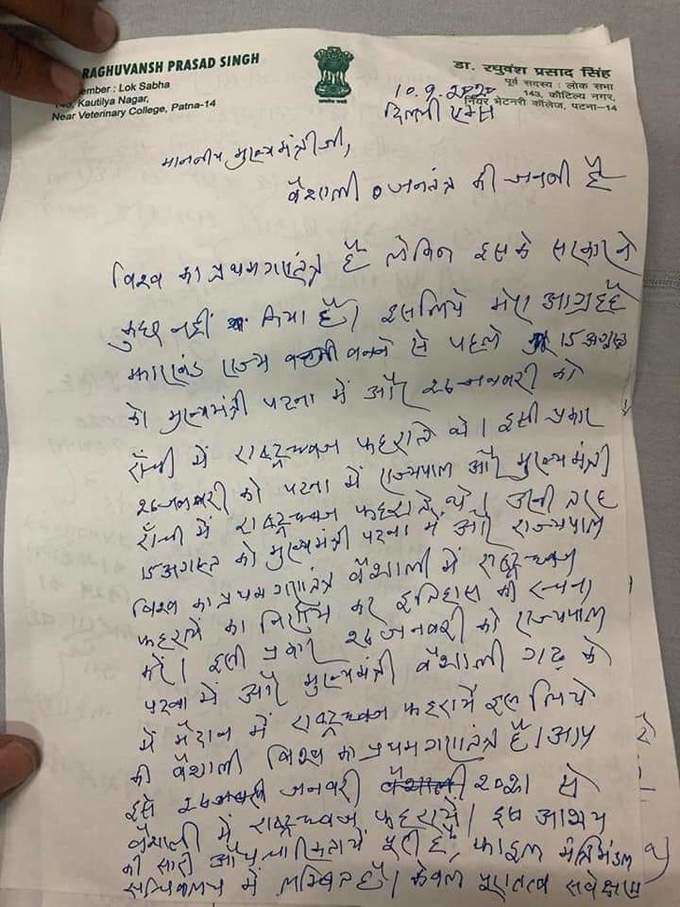 RAGHUVANSH PRASAD SINGH
Member : Lok Sabha
143, Kautilya Nagar,
Near Veterinary College, Patna-14
डा. रघुवंश प्रसाद सिंह
पूर्व सदस्य : लोक सभा
143, कौटिल्य नगर,
नियर भेटनरी कॉलेज, पटना-14
10.9.2020
दिल्ली एम्स
माननीय मुख्यमंत्री जी,
वैशाली जनतंत्र की जननी है
विश्व का प्रथम गणतंत्र है लेकिन इसके सरकार ने
कुछ नहीं किया है। इसलिये मेरा आग्रह है
झारखंड राज्य बनने से पहले 15 अगस्त
को मुख्यमंत्री पटना में और 26 जनवरी को
राँची में राष्ट्रध्वज फहराते थे। इसी प्रकार
26 जनवरी को पटना में राज्यपाल और मुख्यमंत्री
राँची में राष्ट्रध्वज फहराते थे। उसी तरह
15 अगस्त को मुख्यमंत्री पटना में और राज्यपाल
विश्व का प्रथम गणतंत्र वैशाली में राष्ट्रध्वज
फहरायें का निर्णय कर इतिहास की रचना
करें। इसी प्रकार 26 जनवरी को राज्यपाल
पटना में और मुख्यमंत्री वैशाली गढ़ के
में मैदान में राष्ट्रध्वज फहरायें इसलिये
की वैशाली विश्व का प्रथम गणतंत्र है। आप
इसे 26 जनवरी 2021 से
वैशाली में राष्ट्रध्वज फहरायें। इस आशय
की सारी औपचारिकतायें पूरी है, फाइल मंत्रिमंडल
सचिवालय में लम्बित है। केवल पुरातत्व सर्वेक्षण